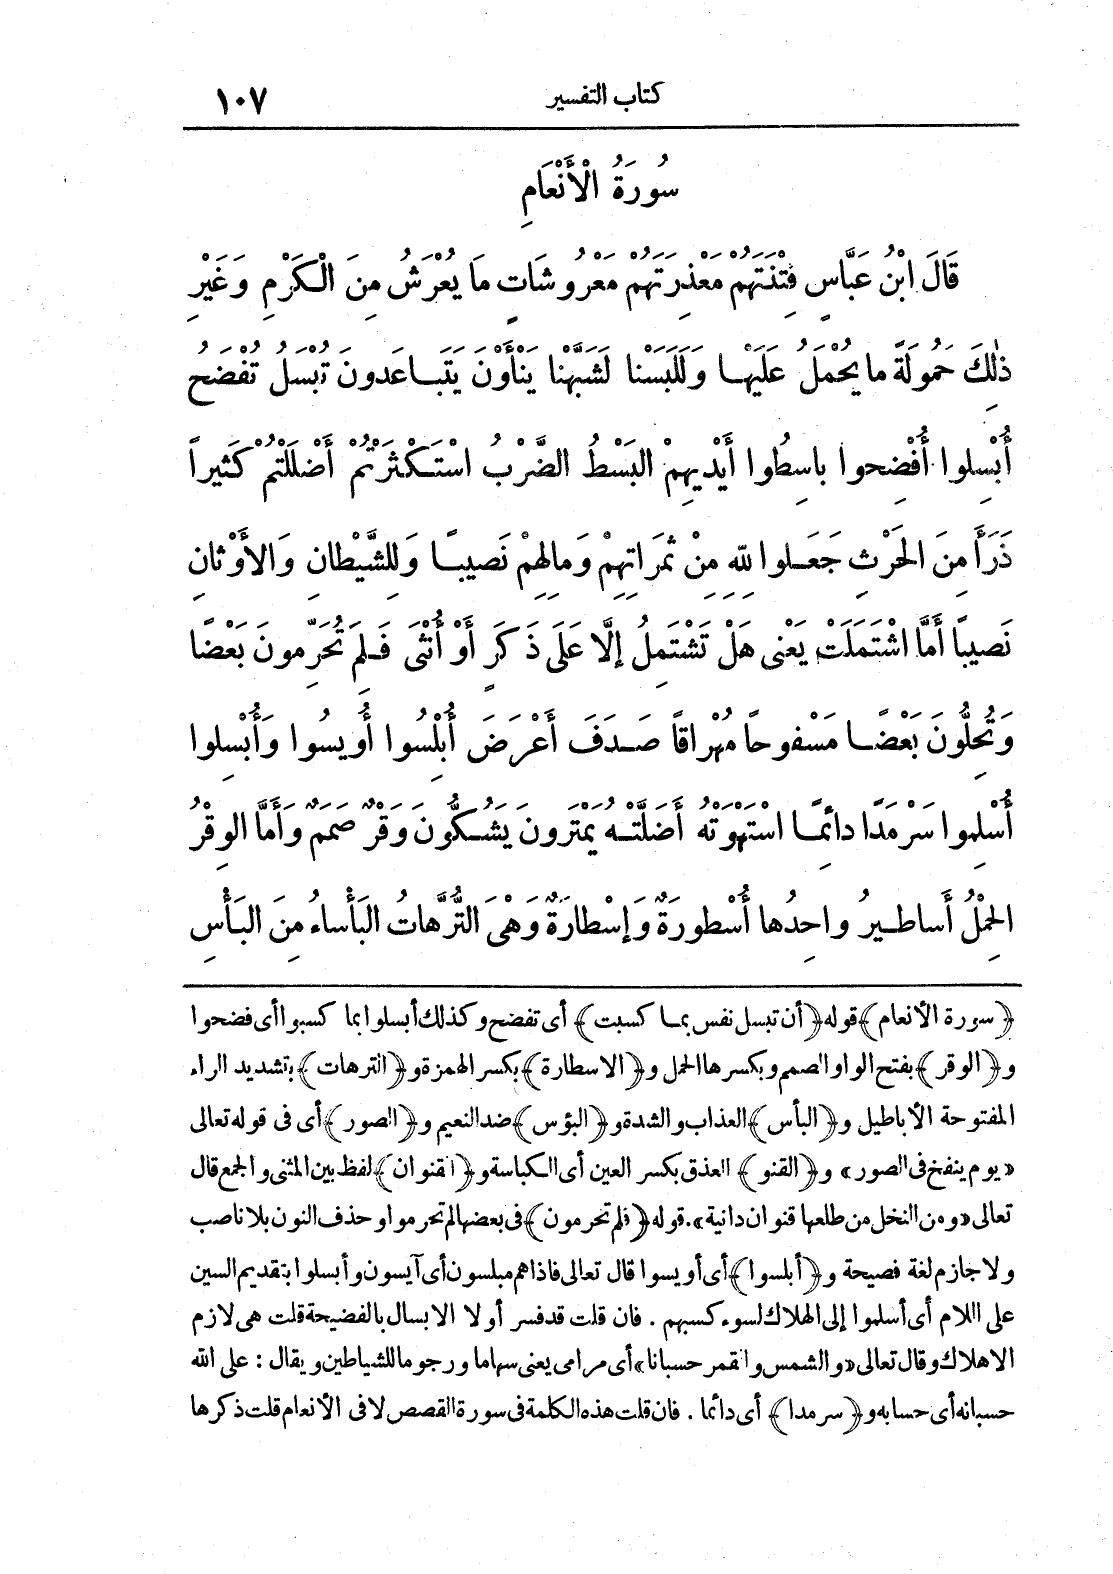 كتاب التفسير ١٠٧
سُورَةُ الْأَنْعَامِ
قَالَ ابْنُ عَبَّاسٍ فِتْنَتَهُمْ مَعْذِرَتَهُمْ مَعْرُوشَاتٍ مَا يُعْرَشُ مِنَ الْكَرْمِ وَغَيْرِ
ذٰلِكَ حَمُولَةً ما يُحْمَلُ عَلَيْهـا وَلَلَبَسْنا لَشَبَّهْنا يَنْأَوْنَ يَتَبـاعَدونَ تُبْسَلُ تُفْضَحُ
أُبْسِلوا أُفْضِحوا باسِطُوا أَيْدِيهِمْ البَسْطُ الضَّرْبُ اسْتَكْـثَرْتُمْ أَضْلَلْتُمْ كَثيراً
ذَرَأَ مِنَ الحَرْثِ جَعَـلوا لِلّهِ مِنْ ثَمَرَاتِهِمْ وَمالِهِمْ نَصيبـاً وَلِلشَّيْطانِ وَالأَوْثانِ
نَصيبًا أَمَّا اشْتَمَلَتْ يَعْنى هَلْ تَشْتَمِلُ إلَّا عَلَى ذَكَرٍ أَوْ أُنْثَى فَـلِمَ تُحَرِّمونَ بَعْضًا
وَتُحِلُّونَ بَعْضًـا مَسْفوحاً مُهْراقاً صَـدَفَ أَعْرَضَ أُبْلِسُوا أُويِسُوا وَأُبْسِلوا
أُسْلِموا سَرْمَدًا دائِمًـا اسْتَهْوَتْهُ أَضَلَّتْـهُ يَمْتَرونَ يَشُـكُّونَ وَقْرٌ صَمَمٌ وَأَمَّا الوِقْرُ
الحِمْلُ أَساطـيرُ واحِدُها أُسْطورَةٌ وَإِسْطارَةٌ وَهْىَ التُّرَّهاتُ البَأْساءُ مِنَ البَأْسِ
﴿سورة الأنعام﴾قوله﴿أن تبسل نفس بمـا كسبت﴾ أى تفضح وكذلك أبسلوا بما كسبوا أى فضحوا
و﴿الوقر﴾بفتح الواو الصمم وبكسرها الحمل و﴿الاسطارة﴾بكسر الهمزة و﴿الترهات﴾بتشديد الراء
المفتوحة الأباطيل و﴿البأس﴾العذاب والشدة و﴿البؤس﴾ضد النعيم و﴿الصور﴾أى فى قوله تعالى
«يوم ينفخ فى الصور» و﴿القنو﴾ العذق بكسر العين أى الكباسة و﴿القنوان﴾لفظ بين المثنى والجمع قال
تعالى «ومن النخل من طلعها قنوان دانية».قوله﴿فلم تحرمون﴾فى بعضها لم تحرموا وحذف النون بلا ناصب
ولا جازم لغة فصيحة و﴿أبلسوا﴾أى أويسوا قال تعالى فاذاهم مبلسون أى آيسون وأبسلوا بتقديم السين
على اللام أى أسلموا إلى الهلاك لسوء كسبهم . فان قلت قد فسر أولا الابسال بالفضيحة قلت هى لازم
الاهلاك وقال تعالى «والشمس والقمر حسبانا» أى مرامى يعنى سهاما ورجوما للشياطين ويقال : على الله
حسبانه أى حسابه و﴿سرمدا﴾ أى دائما . فان قلت هذه الكلمة فى سورة القصص لا فى الأنعام قلت ذكرها